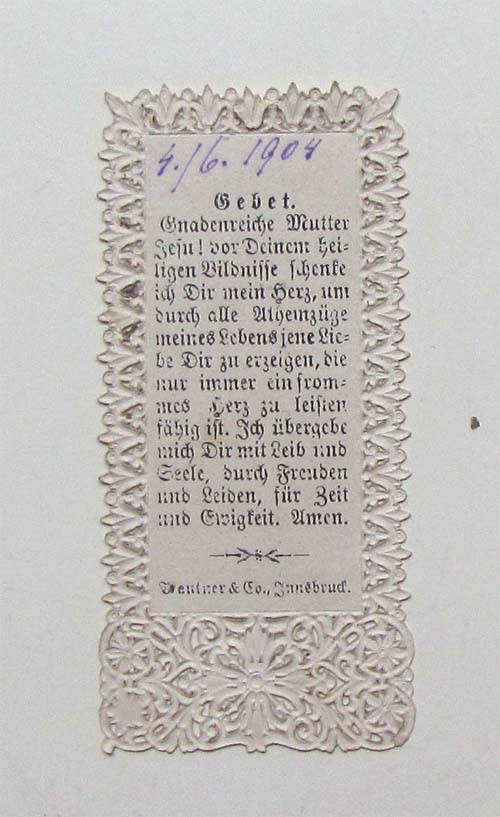 4./6. 1904
Gebet.
Gnadenreiche Mutter
Jesu! vor Deinem hei-
ligen Bildnisse schenke
ich Dir mein Herz, um
durch alle Athemzüge
meines Lebens jene Lie-
be Dir zu erzeigen, die
nur immer ein from-
mes Herz zu leisten
fähig ist. Ich übergebe
mich Dir mit Leib und
Seele, durch Freuden
und Leiden, für Zeit
und Ewigkeit. Amen.
& Co., Innsbruck.